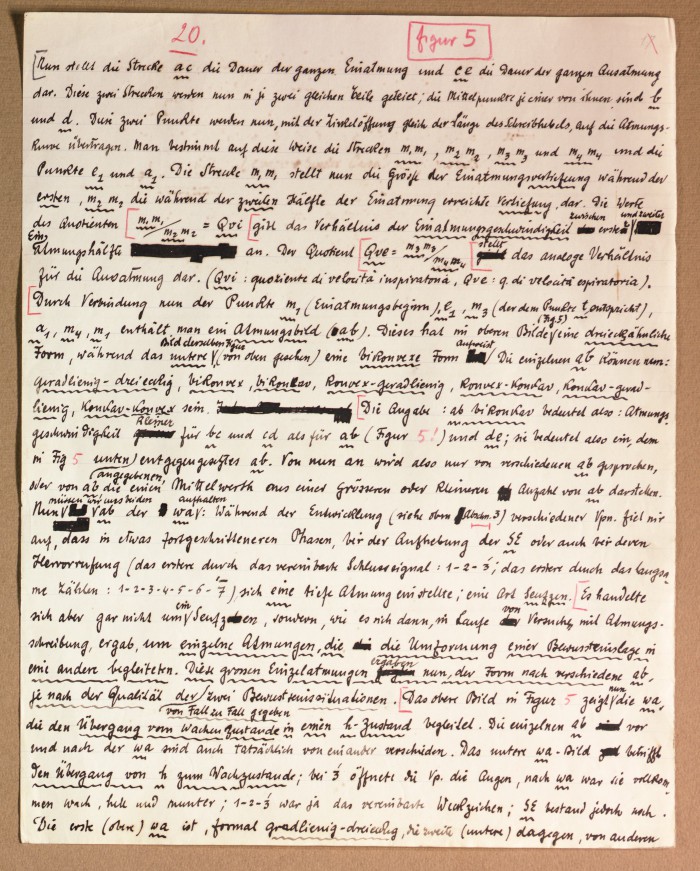 20.
figur 5
Nun stellt die Strecke ac die Dauer der ganzen Einatmung und ce die Dauer der ganzen Ausatmung
dar. Diese zwei Strecken werden nun in je zwei gleichen Teile geteilt; die Mittelpunkte je einer von ihnen sind b
und d. Diese zwei Punkte werden nun, mit der Zirkelöffnung gleich der Länge des Schreibhebels, auf die Atmungs-
kurve übertragen. Man bestimmt auf diese Weise die Strecken m, m₁, m₂ m₂, m₃ m₃ und m₄ m₄ und die
Punkte e₁ und a₁. Die Strecke m, m₁ stellt nun die Grösse der Einatmungsvertiefung während der
ersten, m₂ m₂ die während der zweiten Hälfte der Einatmung erreichte Vertiefung, dar. Die Werte
des Quotienten m, m₁/m₂ m₂ = Qvi gibt das Verhältnis der Einatmungsgeschwindigkeit zwischen erster und zweiter
Einatmungshälfte an. Der Quotient Qve = m₃ m₃/m₄ m₄ stellt das analoge Verhältnis
für die Ausatmung dar. (Qvi : quoziente di velocità inspiratoria, Qve : q. di velocità espiratoria).
Durch Verbindung nun der Punkte m₁ (Einatmungsbeginn), e₁, m₃ (der dem Punkte t entspricht),
(Fig 5)
a₁, m₄, m₁ enthält man ein Atmungsbild (ab). Dieses hat im oberen Bilde eine dreieckähnliche
Form, während das untere Bild derselben Figur (von oben gesehen) eine bikonvexe Form aufweist. Die einzelnen ab können nun:
geradlienig-dreieckig, bikonvex, bikonkav, konvex-geradlienig, konvex-konkav, konkav-grad-
lienig, konkav-konvex sein. Die Angabe: ab bikonkav bedeutet also: Atmungs-
geschwindigkeit kleiner für bc und cd als für ab (Figur 5!) und de; sie bedeutet also ein, dem
in Fig 5 unten) entgegengesetztes ab. Von nun an wird also nur von verschiedenen ab gesprochen,
oder von ab die einen angegebenen, Mittelwerth eines einer Grösseren oder Kleineren Anzahl von ab darstellen.
Nun müssen wir uns bei den ab der wav aufhalten: Während der Entwicklung (siehe oben Absch. 3) verschiedener Vpn. fiel mir
auf, dass in etwas fortgeschritteneren Phasen, bei der Aufhebung der SE oder auch bei deren
Hervorrufung (das erstere durch das vereinbarte Schlussignal: 1-2-3; das erstere durch das langsa-
me Zählen: 1-2-3-4-5-6-7) sich eine tiefe Atmung einstellte; eine Art Seufzen. Es handelte
sich aber gar nicht um ein Seufzen, sondern, wie es sich dann, im Laufe von Versuchen mit Atmungs-
schreibung, ergab, um einzelne Atmungen, die die Umformung einer Bewusstseinslage in
eine andere begleiteten. Diese grossen Einzelatmungen ergaben nun, der Form nach verschiedene ab,
je nach der Qualität der von Fall zu Fall gegeben zwei Bewusstseinssituationen. Das obere Bild in Figur 5 zeigt nun die wa,
die den Übergang vom Wachen Zustande in einen h-zustand begleitet. Die einzelnen ab vor
und nach der wa sind auch tatsächlich von einander verschieden. Das untere wa-Bild betrifft
den Übergang von h zum Wachzustande; bei 3 öffnete die Vp. die Augen, nach wa war sie vollkom-
men wach, hell und munter; 1-2-3 war ja das vereinbarte Weckzeichen; SE bestand jedoch noch.
Die erste (obere) wa ist, formal gradlienig-dreieckig, die zweite (untere) dagegen, von anderen